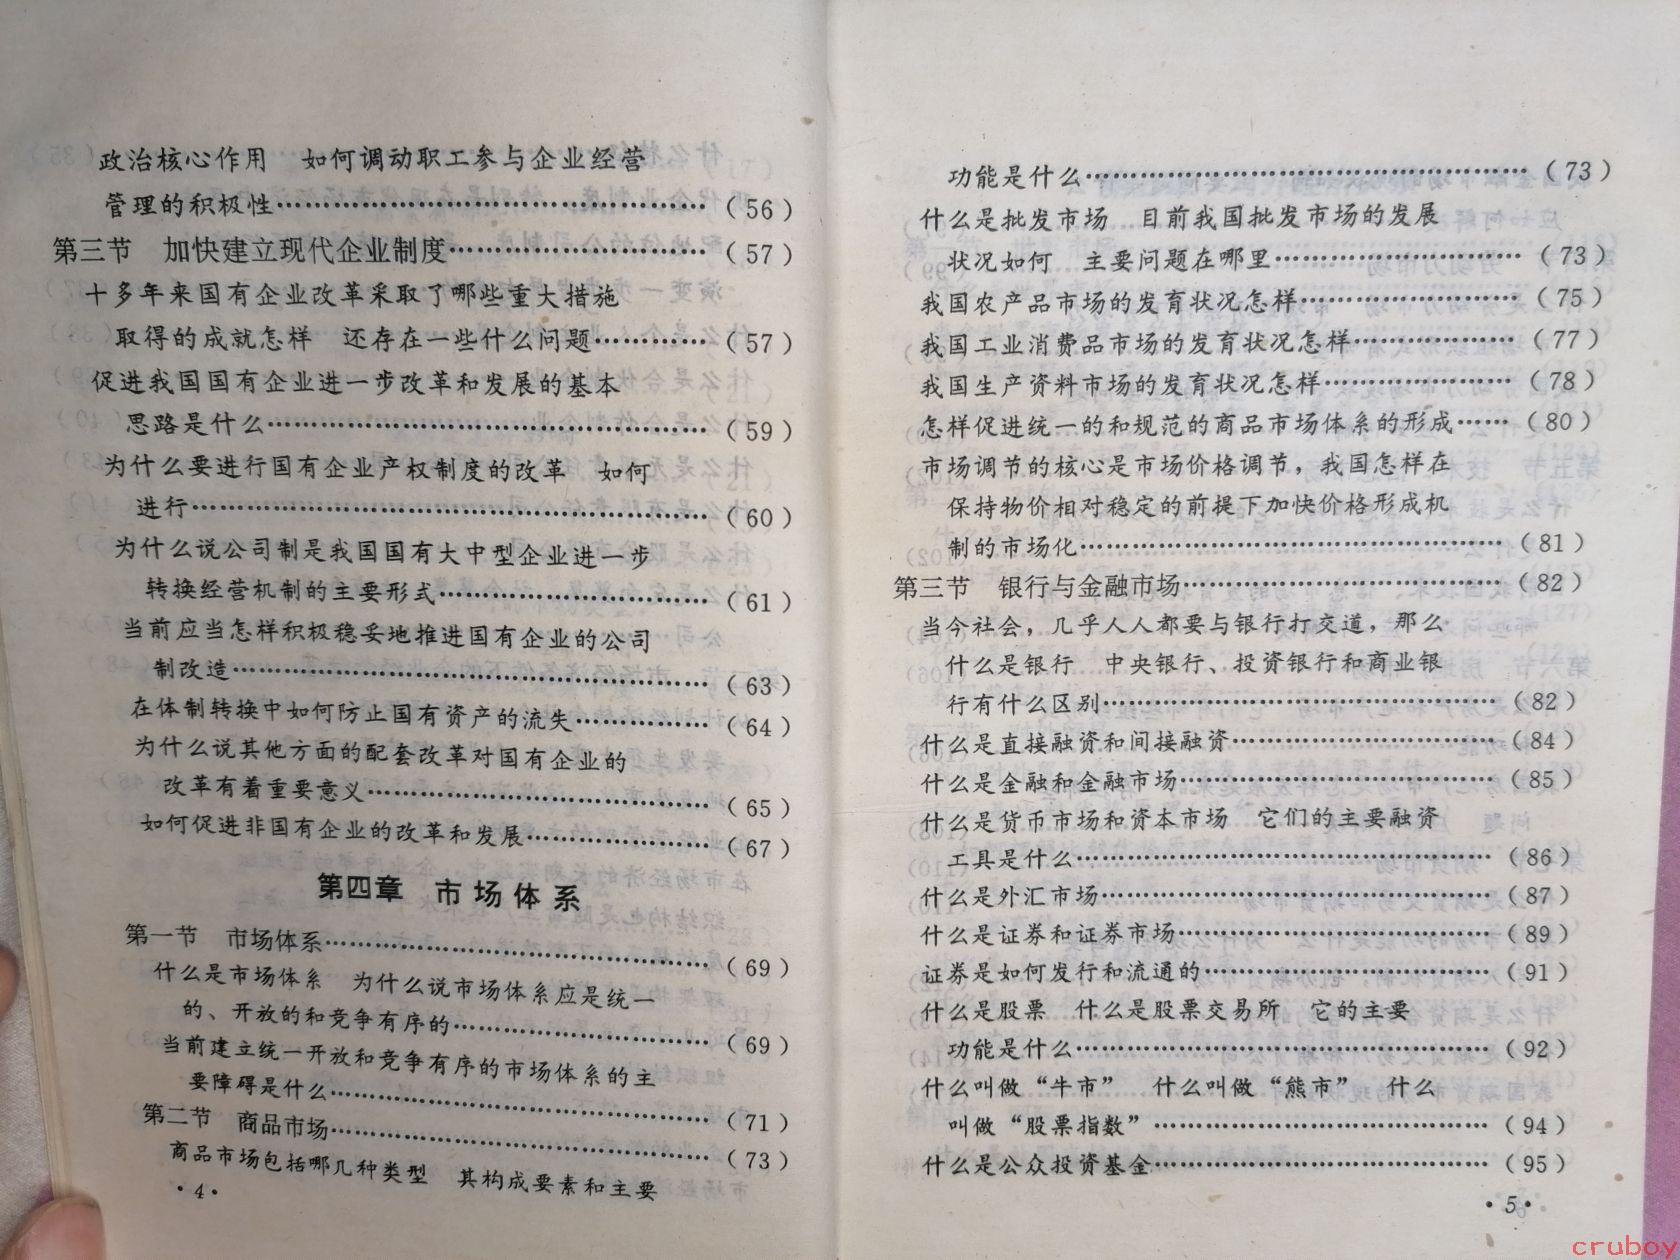 政治核心作用　如何调动职工参与企业经营
管理的积极性……………………………………（56）
第三节　加快建立现代企业制度……………………（57）
十多年来国有企业改革采取了哪些重大措施
取得的成就怎样　还存在一些什么问题…………（57）
促进我国国有企业进一步改革和发展的基本
思路是什么………………………………………（59）
为什么要进行国有企业产权制度的改革　如何
进行………………………………………………（60）
为什么说公司制是我国国有大中型企业进一步
转换经营机制的主要形式………………………（61）
当前应当怎样积极稳妥地推进国有企业的公司
制改造……………………………………………（63）
在体制转换中如何防止国有资产的流失…………（64）
为什么说其他方面的配套改革对国有企业的
改革有着重要意义………………………………（65）
如何促进非国有企业的改革和发展………………（67）
第四章　市场体系
第一节　市场体系……………………………………（69）
什么是市场体系　为什么说市场体系应是统一
的、开放的和竞争有序的………………………（69）
当前建立统一开放和竞争有序的市场体系的主
要障碍是什么……………………………………（71）
第二节　商品市场……………………………………（73）
商品市场包括哪几种类型　其构成要素和主要
·4·
功能是什么………………………………………（73）
什么是批发市场　目前我国批发市场的发展
状况如何　主要问题在哪里……………………（73）
我国农产品市场的发育状况怎样…………………（75）
我国工业消费品市场的发育状况怎样……………（77）
我国生产资料市场的发育状况怎样………………（78）
怎样促进统一的和规范的商品市场体系的形成……（80）
市场调节的核心是市场价格调节，我国怎样在
保持物价相对稳定的前提下加快价格形成机
制的市场化………………………………………（81）
第三节　银行与金融市场……………………………（82）
当今社会，几乎人人都要与银行打交道，那么
什么是银行　中央银行、投资银行和商业银
行有什么区别……………………………………（82）
什么是直接融资和间接融资………………………（84）
什么是金融和金融市场……………………………（85）
什么是货币市场和资本市场　它们的主要融资
工具是什么………………………………………（86）
什么是外汇市场……………………………………（87）
什么是证券和证券市场……………………………（89）
证券是如何发行和流通的…………………………（91）
什么是股票　什么是股票交易所　它的主要
功能是什么………………………………………（92）
什么叫做“牛市”　什么叫做“熊市”　什么
叫做“股票指数”………………………………（94）
什么是公众投资基金………………………………（95）
·5·
cruboy